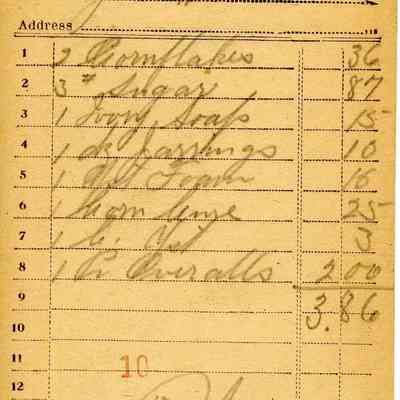 Address
1 2 Cornflakes 36
2 3# Sugar 87
3 1 Ivory Soap 15
4 1 10
5 1 Foam 16
6 1 Corn 25
7 1 3
8 1 Pr Overalls 2 00
9 3.86
10
11 10
12